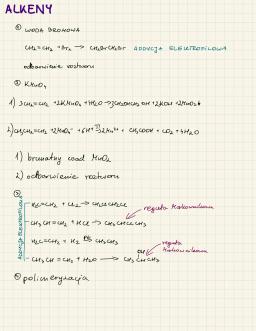 ALKENY
① WODA BROMOWA
CH₂=CH₂ + Br₂ → CH₂BrCH₂Br ADDYCJA ELEKTROFILOWA
odbarwienie roztworu
② KMnO₄
1) 3CH₂=CH₂ + 2KMnO₄ + 4H₂O → 3CH₂OHCH₂OH + 2KOH + 2MnO₂↓
2) CH₃CH=CH₂ + 2MnO₄⁻ + 6H⁺ → 2Mn²⁺ + CH₃COOH + CO₂ + 4H₂O
1) brunatny osad MnO₂
2) odbarwienie roztworu
③
ADDYCJA ELEKTROFILOWA
H₂C=CH₂ + Cl₂ → CH₂ClCH₂Cl
reguła Markownikowa
CH₃CH=CH₂ + HCl → CH₃CHClCH₃
H₂C=CH₂ + H₂ → CH₃CH₃
reguła Markownikowa
CH₃CH=CH₂ + H₂O → CH₃CHCH₃
OH
④ polimeryzacja